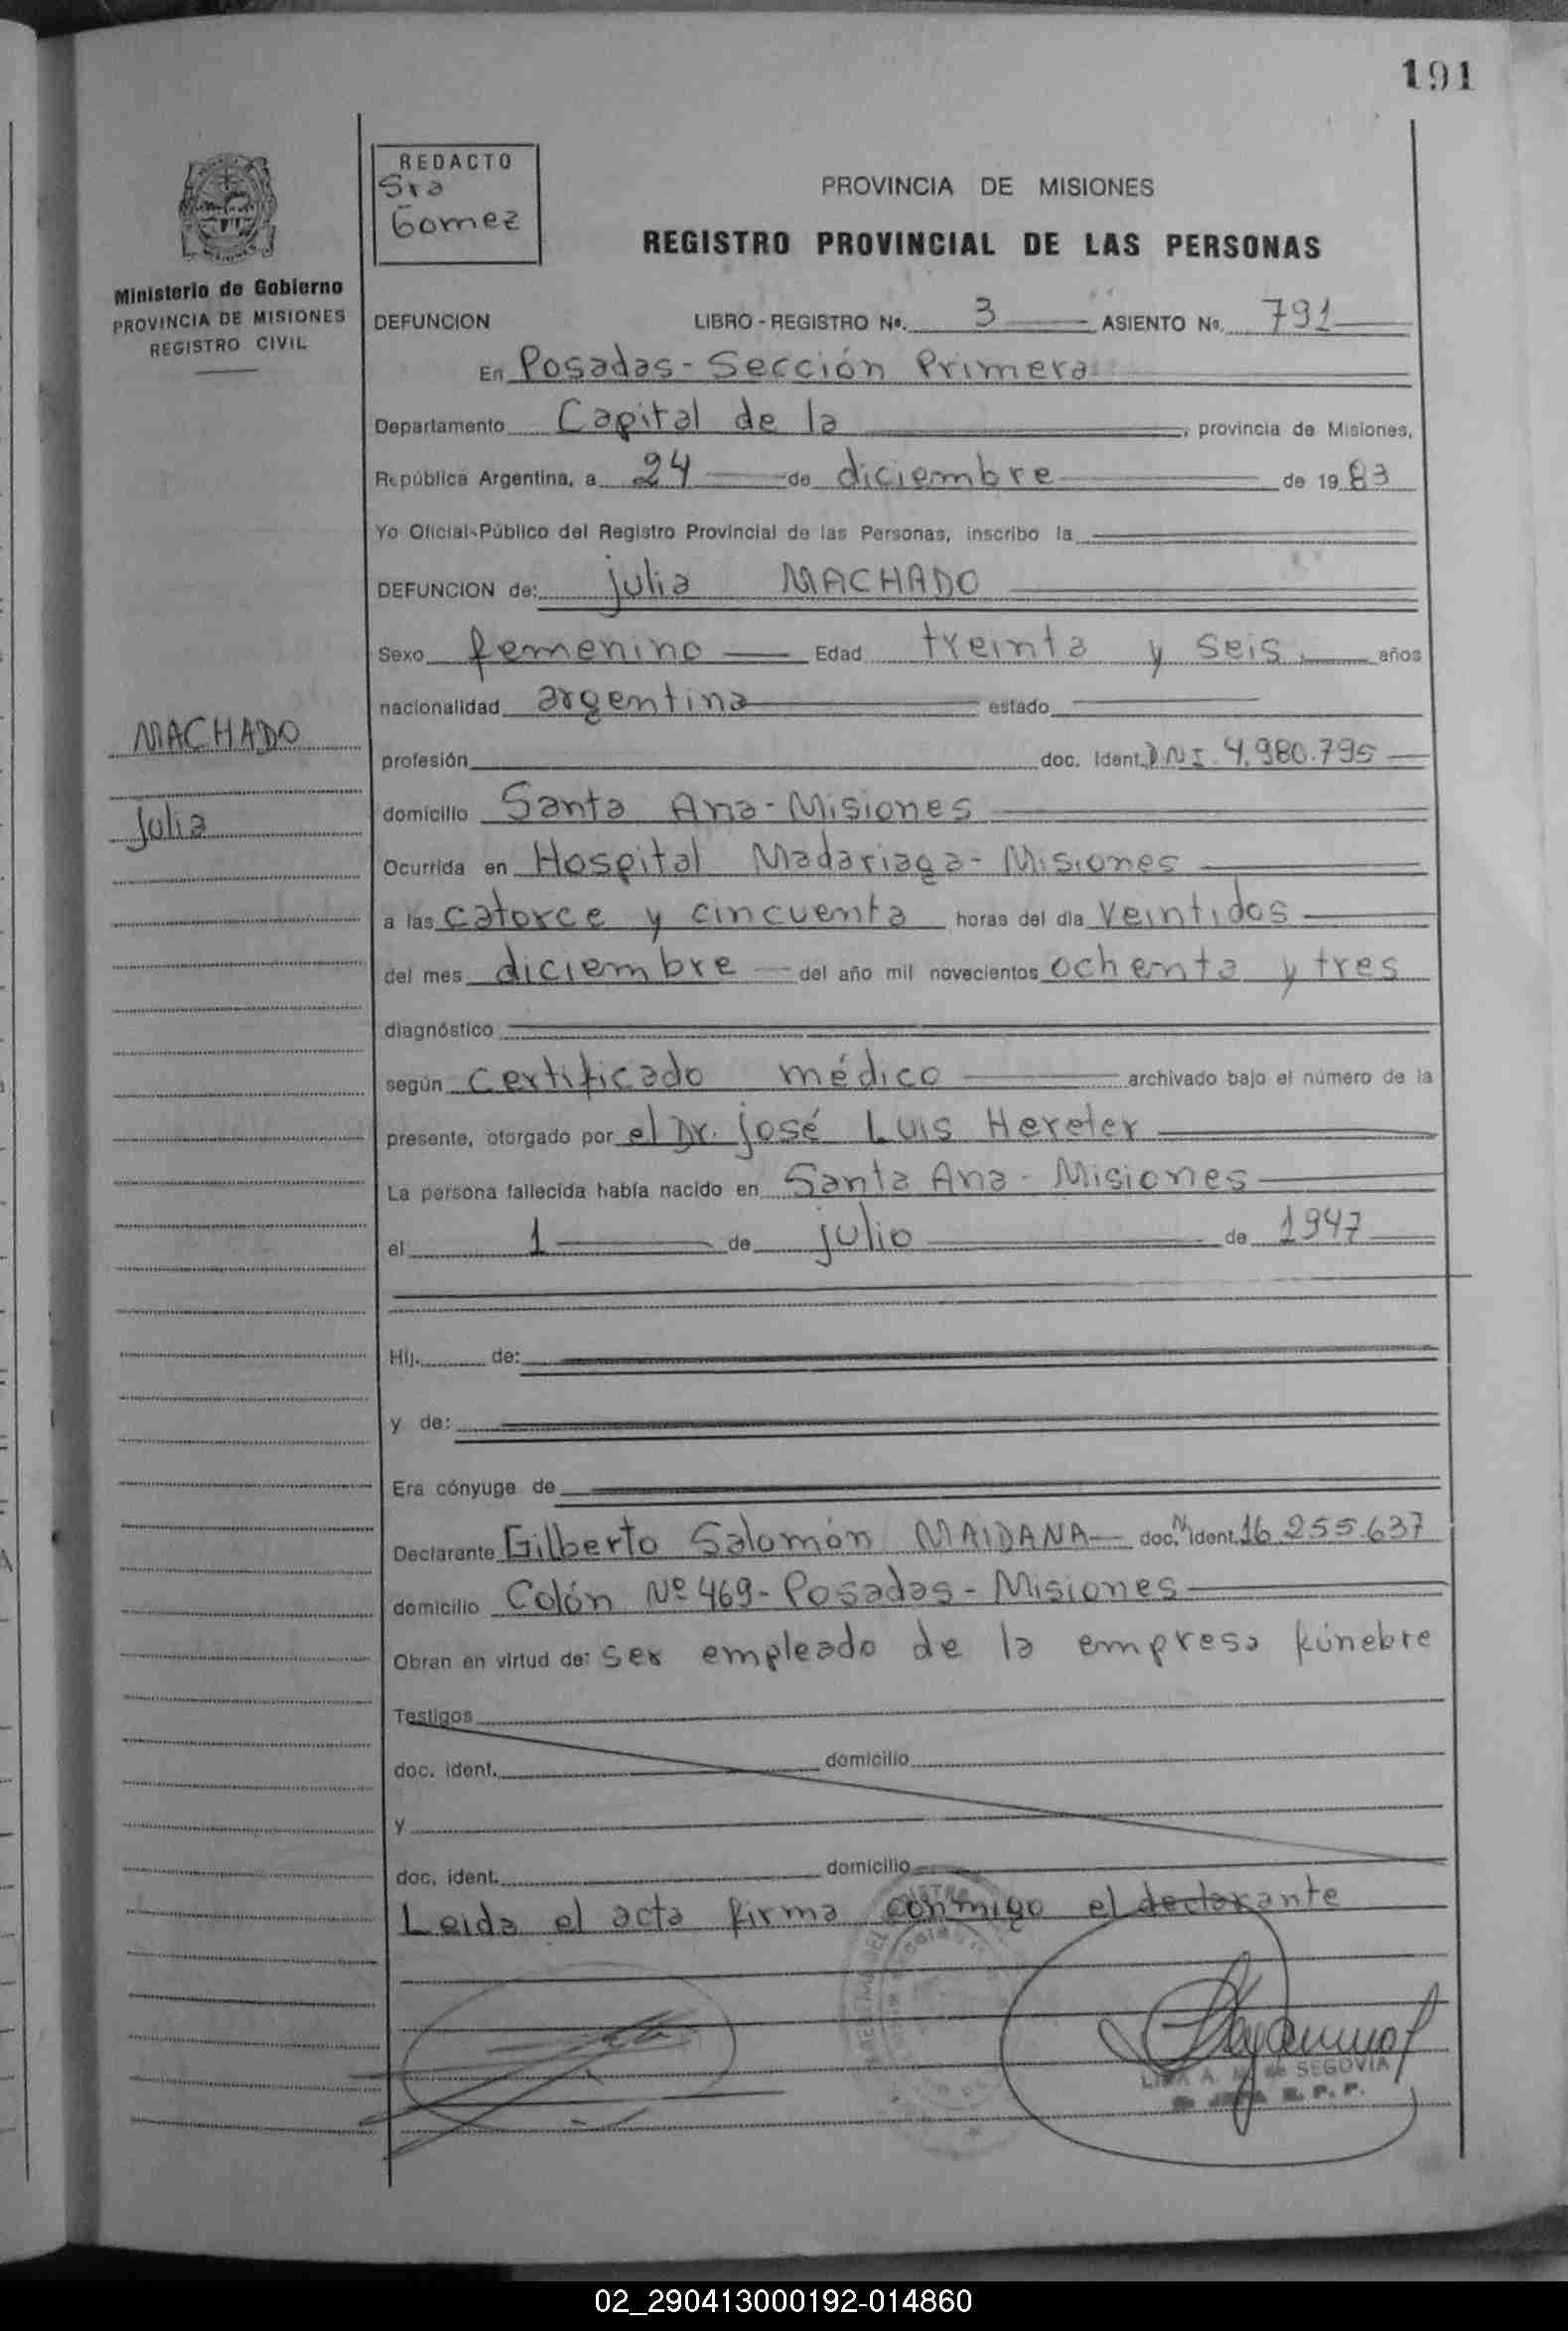 191
REDACTO
Sra
Gomez
PROVINCIA DE MISIONES
REGISTRO PROVINCIAL DE LAS PERSONAS
Ministerio de Gobierno
PROVINCIA DE MISIONES
REGISTRO CIVIL
DEFUNCION LIBRO - REGISTRO Nº. 3 ASIENTO Nº. 791
En Posadas - Sección Primera
Departamento Capital de la , provincia de Misiones,
República Argentina, a 24 de diciembre de 1983
Yo Oficial-Público del Registro Provincial de las Personas, inscribo la
DEFUNCION de: julia MACHADO
Sexo femenino Edad treinta y seis. años
nacionalidad argentina estado
MACHADO
profesión doc. ident. DNI 4.980.795
julia
domicilio Santa Ana - Misiones
Ocurrida en Hospital Madariaga - Misiones
a las catorce y cincuenta horas del día veintidos
del mes diciembre del año mil novecientos ochenta y tres
diagnóstico
según certificado médico archivado bajo el número de la
presente, otorgado por el Dr. josé Luis Hereter
La persona fallecida había nacido en Santa Ana - Misiones
el 1 de julio de 1947
Hij. de:
y de:
Era cónyuge de
Declarante Gilberto Salomón MAIDANA doc. Nº ident. 16.255.637
domicilio Colón Nº 469 - Posadas - Misiones
Obran en virtud de: ser empleado de la empresa fúnebre
Testigos
doc. ident. domicilio
y
doc. ident. domicilio
Leida el acta firma conmigo el declarante
de SEGOVIA
R. P. P.
02_290413000192-014860